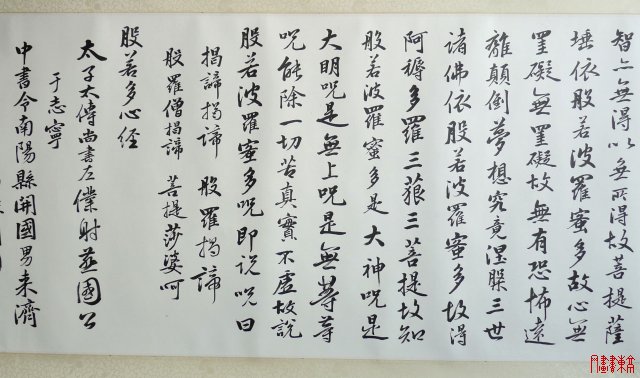 智亦無得以無所得故菩提薩
埵依般若波羅蜜多故心無
罣礙無罣礙故無有恐怖遠
離顛倒夢想究竟涅槃三世
諸佛依般若波羅蜜多故得
阿耨多羅三藐三菩提故知
般若波羅蜜多是大神咒是
大明咒是無上咒是無等等
咒能除一切苦真實不虛故說
般若波羅蜜多咒即说咒曰
揭諦揭諦 般羅揭諦
般羅僧揭諦 菩提莎婆呵
般若多心經
太子太傅尚書左僕射燕國公
于志寧
中書令南陽縣開國男来濟